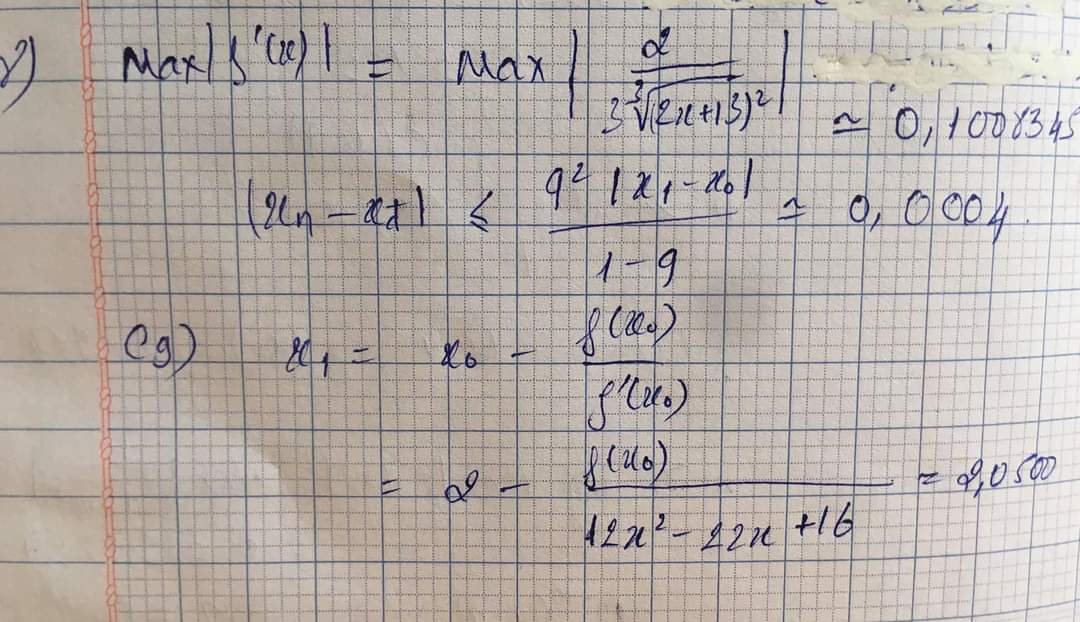 Max|f'(x)| = Max | 2 / 3∛(2x+13)² | ≃ 0,1008345
|xn - x*| ≤ q² |x₁ - x₀| / 1 - q ≃ 0,0004
(g) x₁ = x₀ - f(x₀) / f'(x₀)
= 2 - f(x₀) / 12x² - 22x + 16 = 2,0500